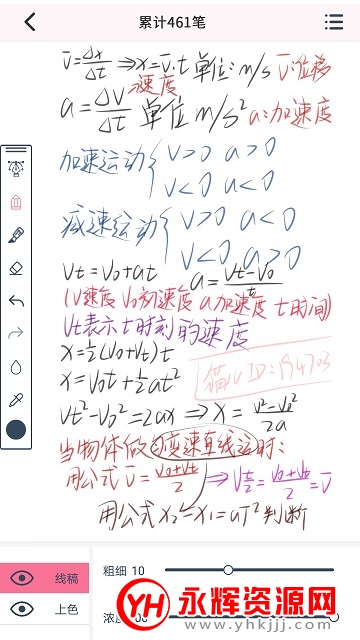 累计461笔
v̄=Δx/Δt ⇒ x=v̄.t 单位: m/s v̄:位移
→速度
a=ΔV/Δt 单位 m/s² a:加速度
加速运动{ V>0 a>0
V<0 a<0
减速运动{ V>0 a<0
V<0 a>0
Vt=V0+at a=(Vt-V0)/t
(V速度 V0初速度 a加速度 t时间)
Vt表示t时刻的速度
x=½(V0+Vt)t
x=V0t+½at²
Vt²-V0²=2ax ⇒ x=(V²-V0²)/2a
当物体做匀变速直线运时:
用公式 v̄=(V0+Vt)/2 ⇒ V t/2=(V0+Vt)/2=v̄
用公式x2-x1=aT²判断
线稿
粗细 10
上色
浓度
YH 永辉资源网
www.yhkjjj.com